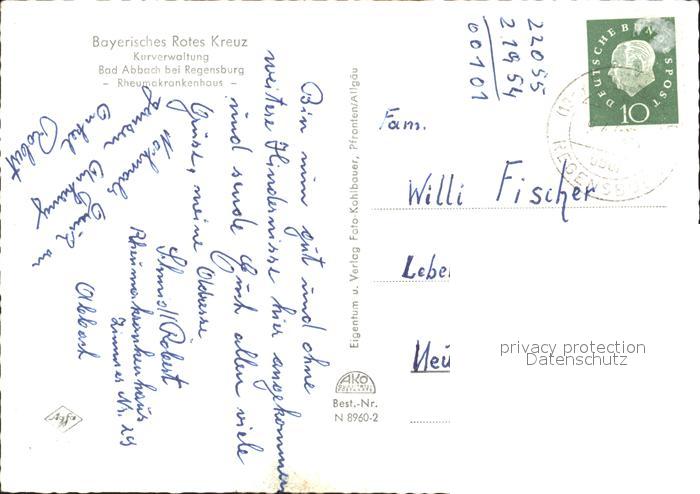 Bayerisches Rotes Kreuz
Kurverwaltung
Bad Abbach bei Regensburg
- Rheumakrankenhaus -
Bin nun gut und ohne
weitere Hindernisse hier angekommen
und sende Euch allen viele
Grüsse, meine Adresse
Schmidt Robert
Rheumakrankenhaus
Zimmer Nr. 19
Abbach
Nochmals
Onkel
Robert
Eigentum u. Verlag Foto-Kohlbauer, Pfronten/Allgäu
AKO
Best.-Nr.
N 8960-2
Agfa
22055
21954
00101
DEUTSCHE BUNDESPOST
10
REGENSBURG
Fam.
Willi Fischer
Lebe
Neu
privacy protection
Datenschutz